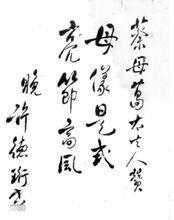 蔡母葛太夫人赞
母仪是式
亮节高风
晚
许德珩书